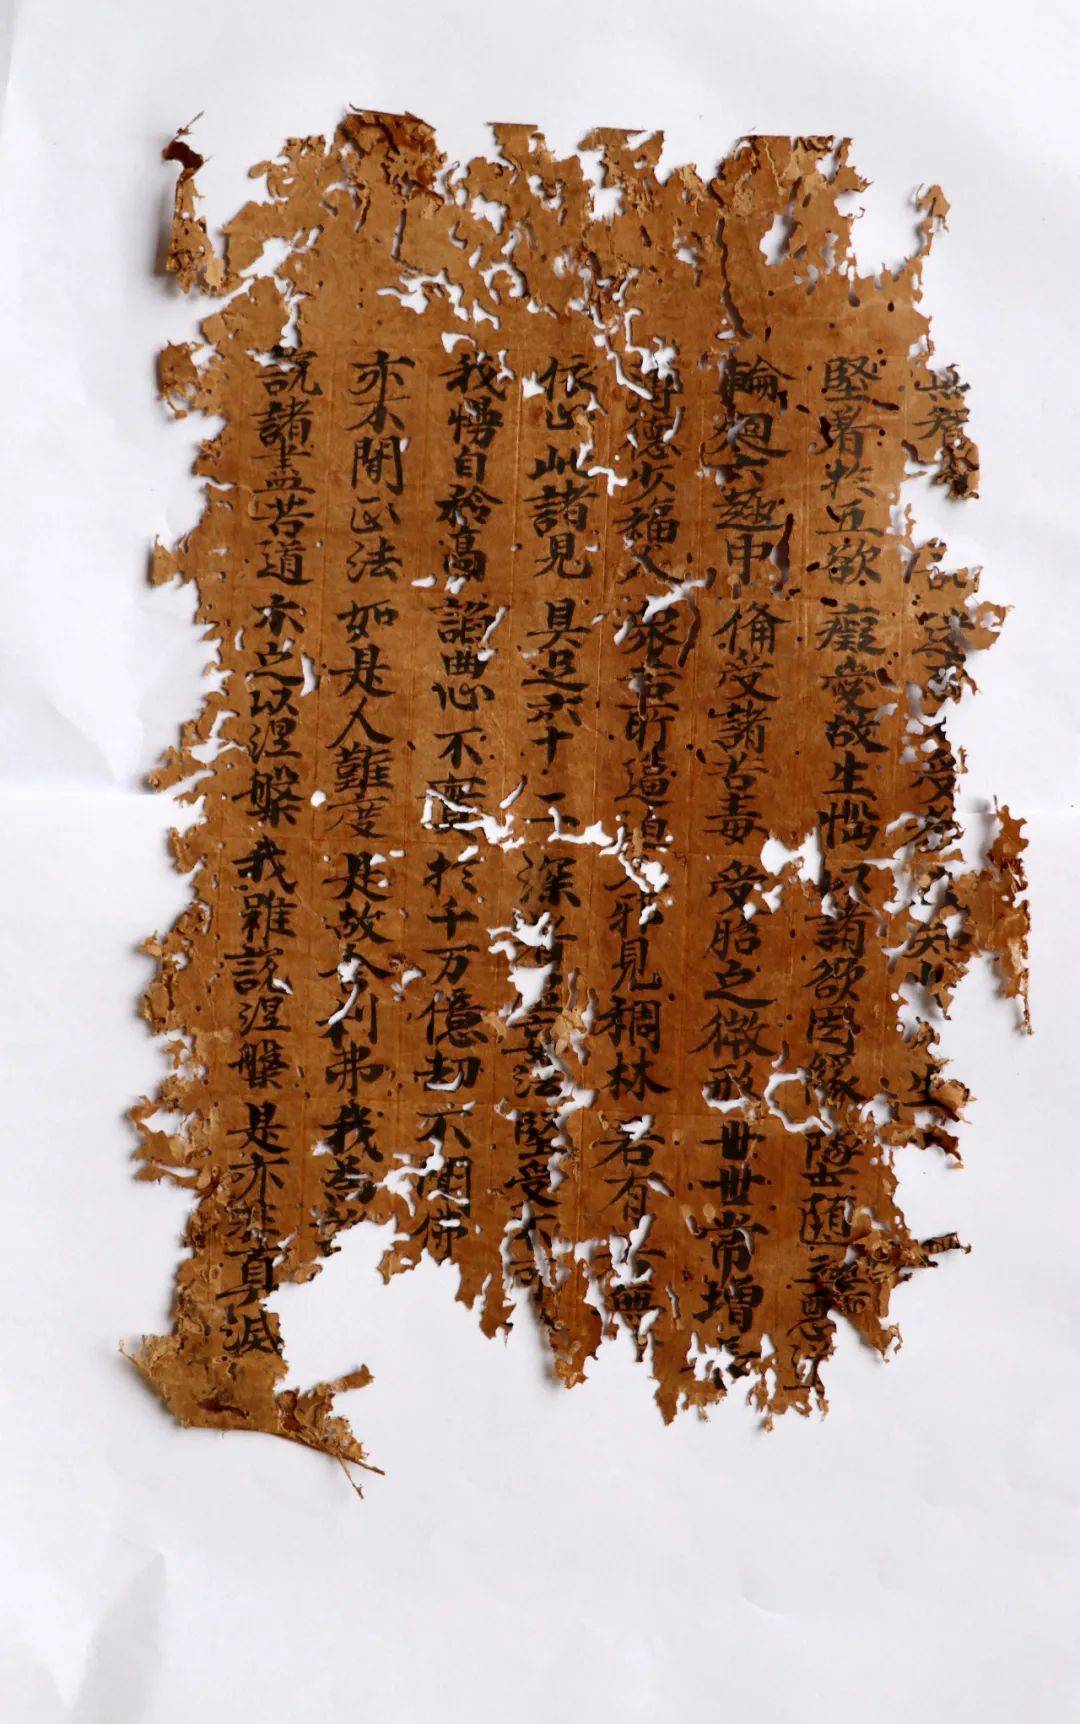 無智 受 知 生
堅著於五欲 癡愛故生惱 以諸欲因緣 墜墮三惡
輪迴六趣中 俻受諸苦毒 受胎之微形 世世常增長
薄德少福人 眾苦所逼迫 入邪見稠林 若有 無
依止此諸見 具足六十二 深著 妄法 堅受不可
我慢自矜高 諂曲心不實 於千万億劫 不聞佛
亦不聞正法 如是人難度 是故舍利弗 我為設
說諸盡苦道 示之以涅槃 我雖說涅槃 是亦非真滅